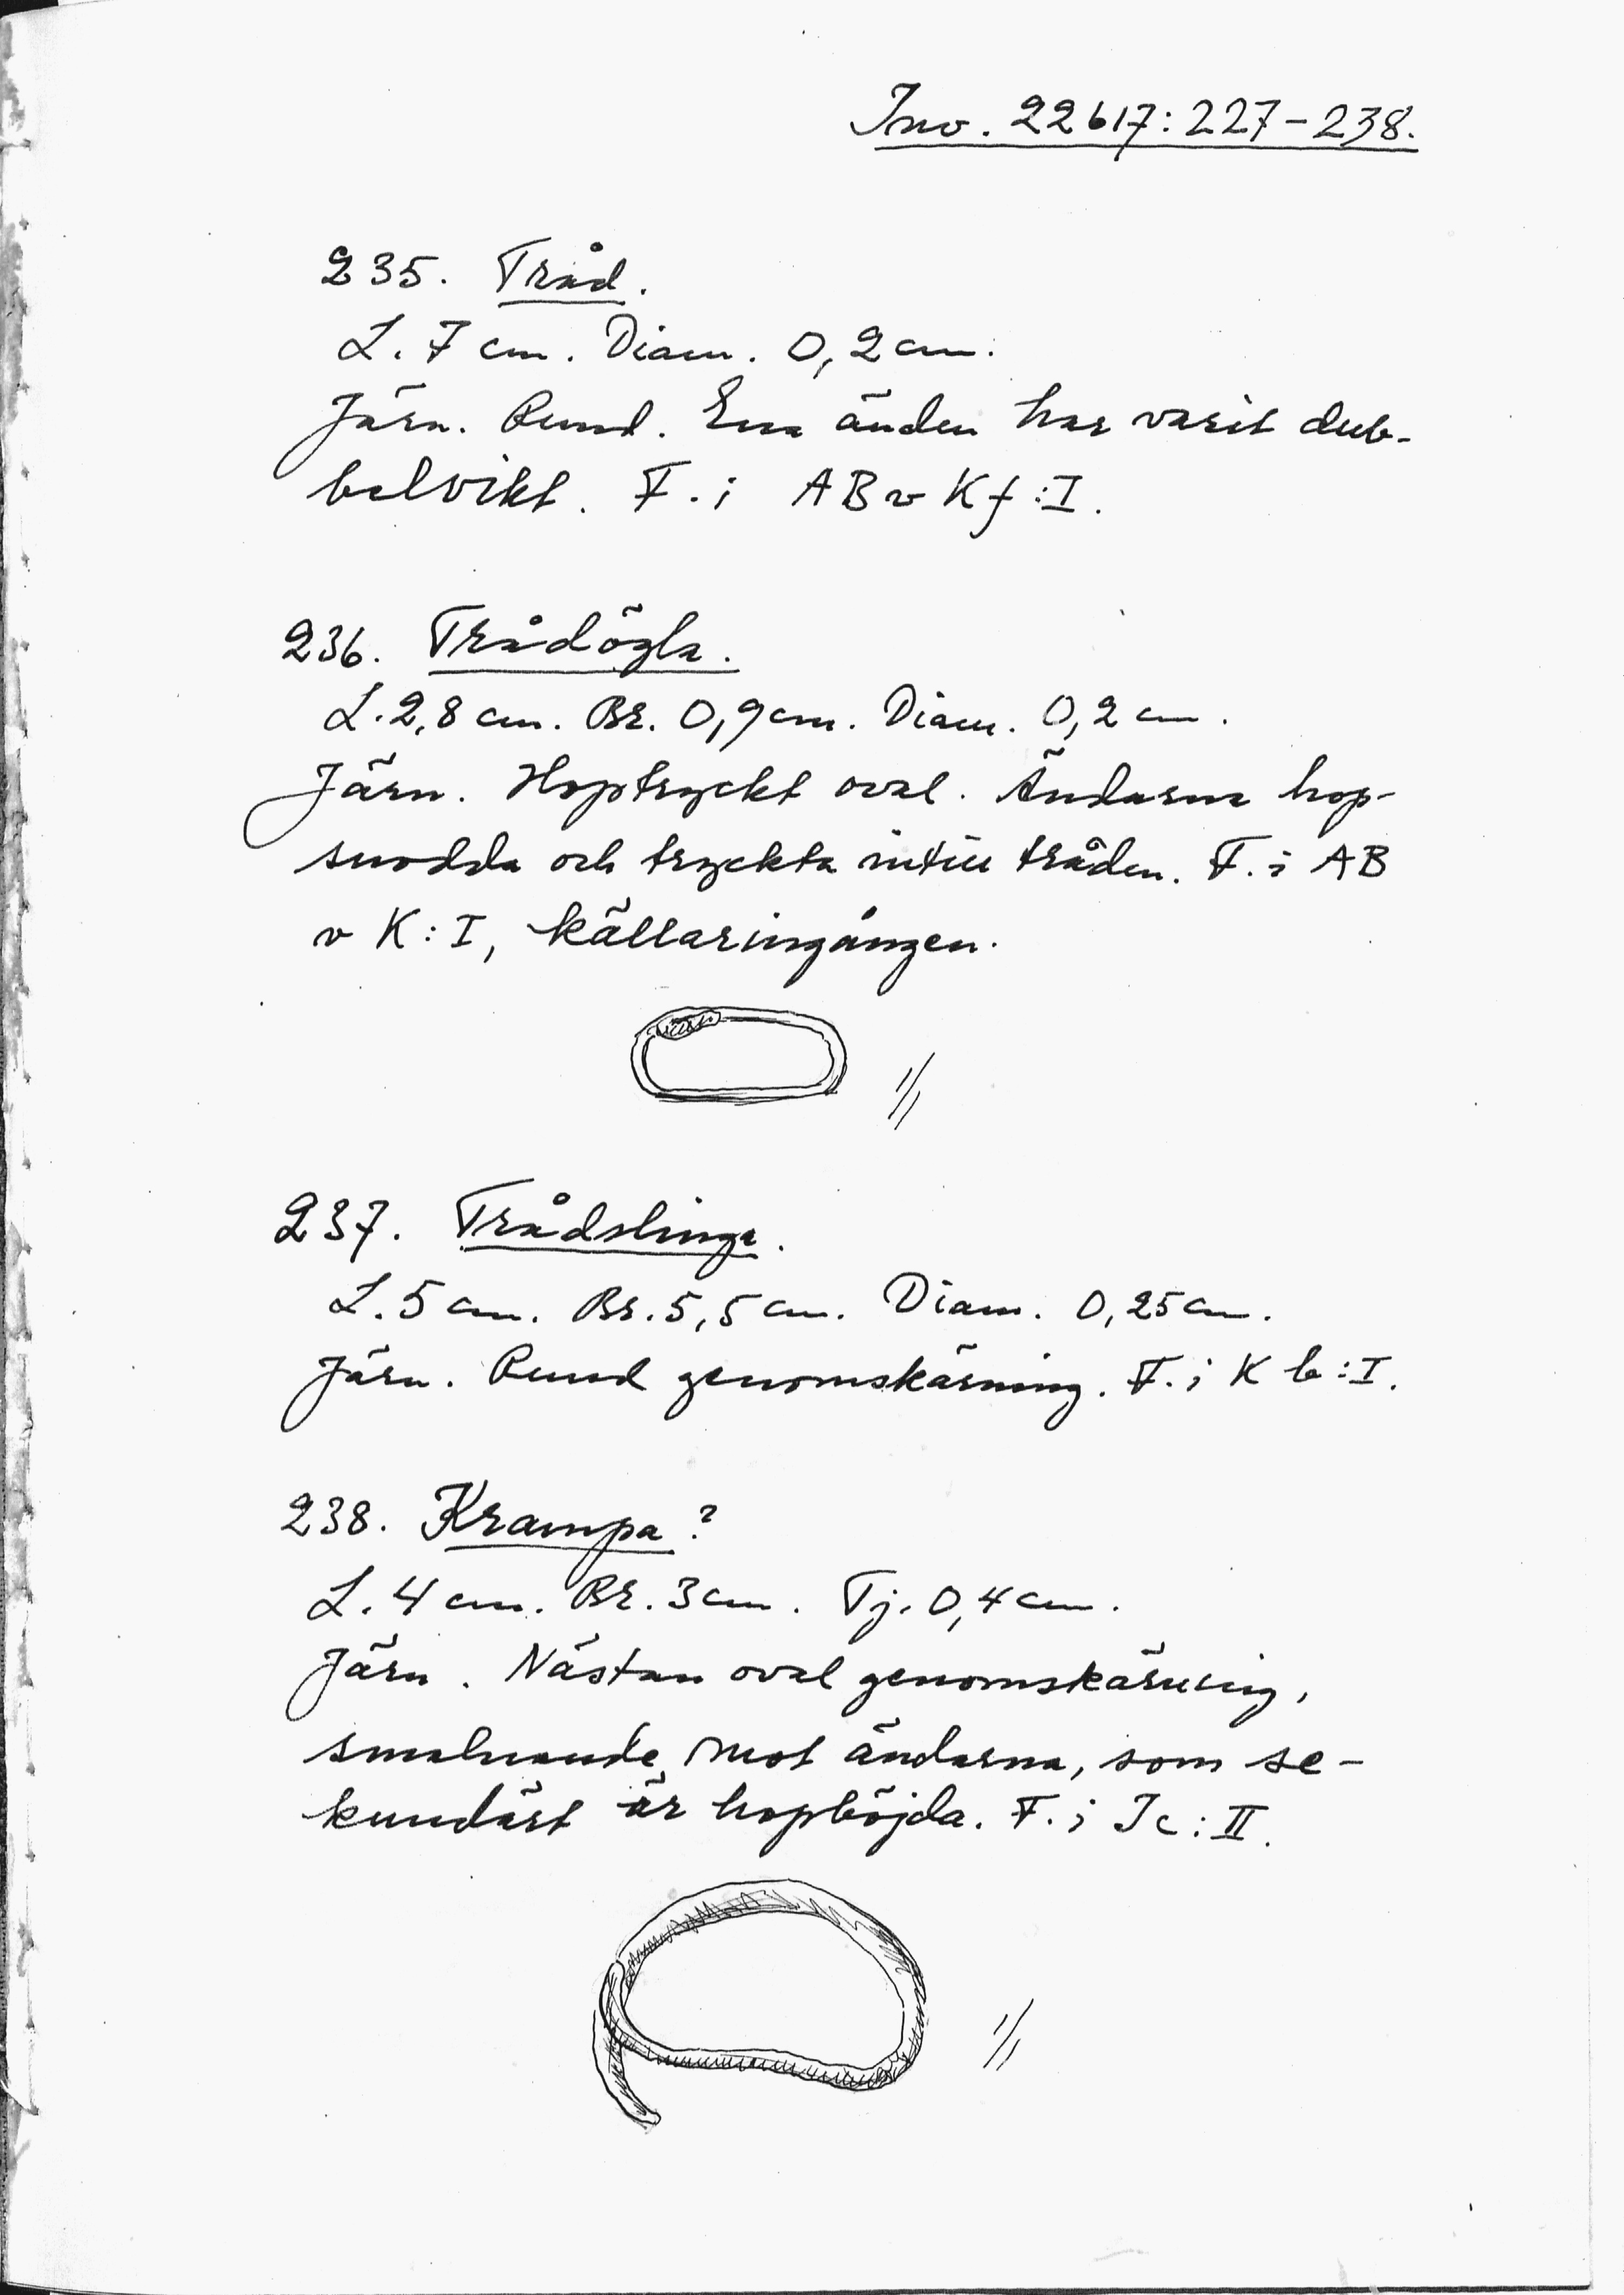 Inv. 22617:227-238.
235. Tråd.
L. 7 cm. Diam. 0,2 cm.
Järn. Rund. Ena änden har varit dub-
belvikt. F. i ABv Kf:I.
236. Trådögla.
L. 2,8 cm. Br. 0,9 cm. Diam. 0,2 cm.
Järn. Hoptryckt oval. Ändarna hop-
snodda och tryckta intill tråden. F. i AB
v K:I, källaringången.
1/1
237. Trådslinga.
L. 5 cm. Br. 5,5 cm. Diam. 0,25 cm.
Järn. Rund genomskärning. F. i K b:I.
238. Krampa?
L. 4 cm. Br. 3 cm. Tj. 0,4 cm.
Järn. Nästan oval genomskärning,
smalnande mot ändarna, som se-
kundärt är hopböjda. F. i Jc:II.
1/1